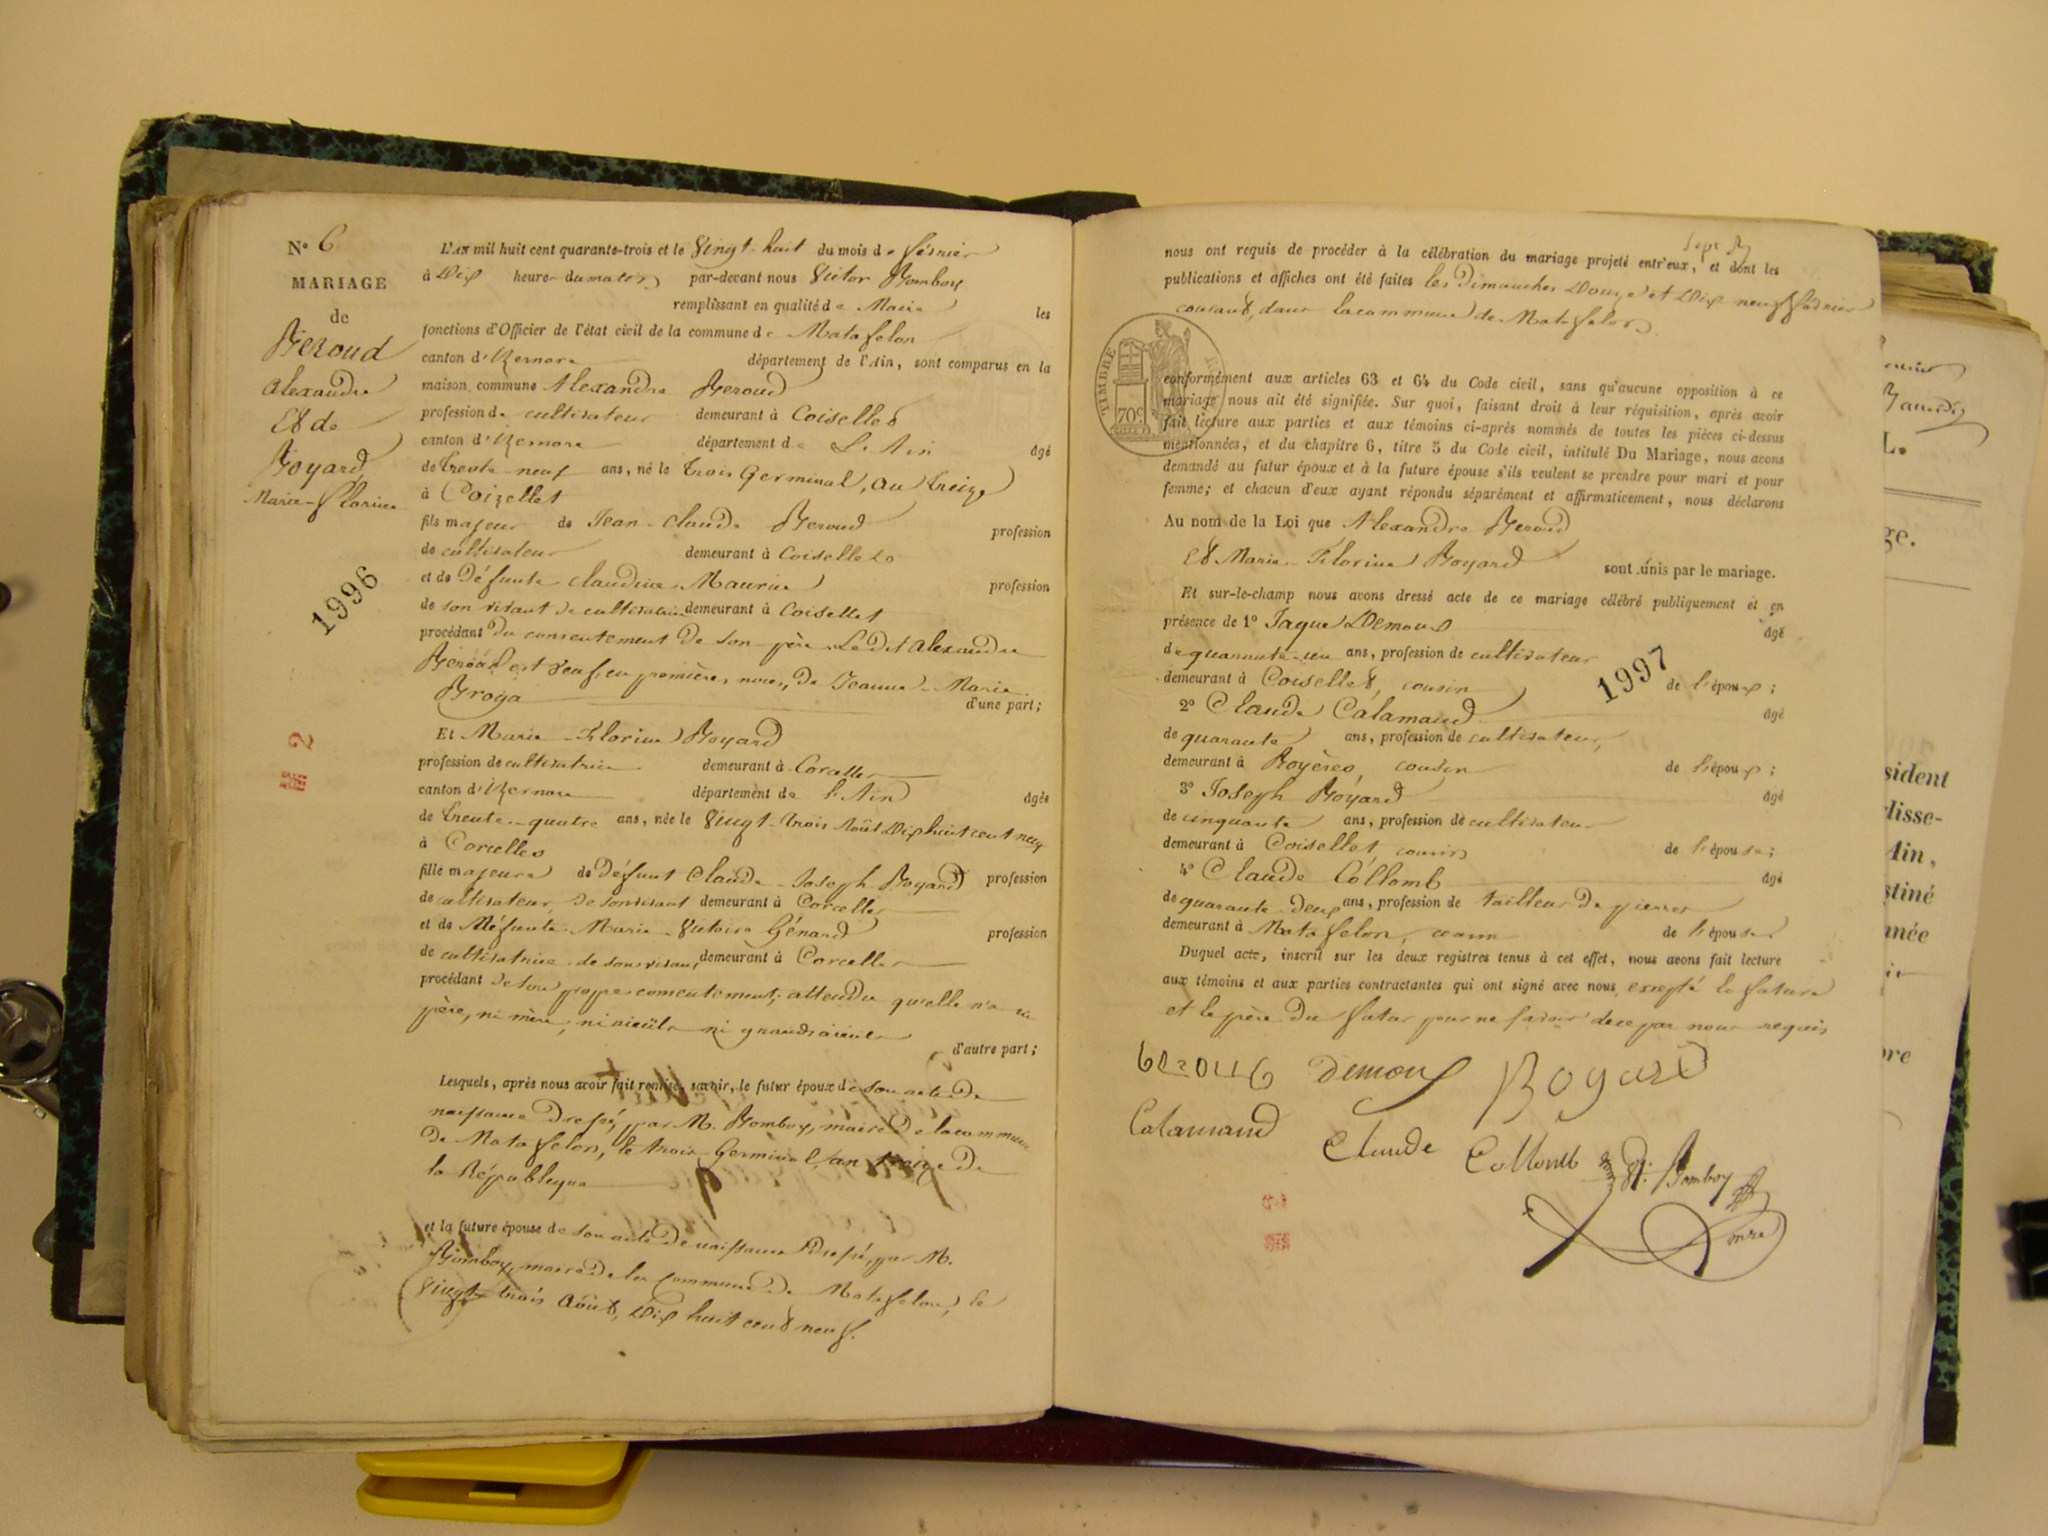 N° 6
MARIAGE
de
Beroud
Alexandre
Et de
Boyard
Marie-Florine
1996
L'AN mil huit cent quarante-trois et le Vingt-huit du mois de février
à Dix heures du matin par-devant nous Victor Bomboy
remplissant en qualité de Maire les
fonctions d'Officier de l'état civil de la commune de Matafelon
canton d'Izernore département de l'Ain, sont comparus en la
maison commune Alexandre Beroud
profession de cultivateur demeurant à Coisellet
canton d'Izernore département de L'Ain âgé
de trente-neuf ans, né le trois Germinal, an treize
à Coizellet
fils majeur de Jean-Claude Beroud profession
de cultivateur demeurant à Coisellet
et de Défunte Claudine Maurin profession
de son vivant de cultivatrice demeurant à Coisellet
procédant du consentement de son père. Le dit Alexandre
Beroud est veuf, en première, noces, de Jeanne-Marie
Broya d'une part;
Et Marie-Florine Boyard
profession de cultivatrice demeurant à Corcelles
canton d'Izernore département de l'Ain âgée
de trente-quatre ans, née le Vingt-trois Août Dix huit cent neuf
à Corcelles
fille majeure de Défunt Claude-Joseph Boyard profession
de cultivateur de son vivant demeurant à Corcelles
et de Défunte Marie-Victoire Génard profession
de cultivatrice de son vivant demeurant à Corcelles
procédant de son propre consentement; attendu qu'elle n'a ni
père, ni mère, ni aieüls ni grands aieuls
d'autre part;
Lesquels, après nous avoir fait remise, savoir, le futur époux de son acte de
naissance Dressé, par M. Bomboy, maire de la commune
de Matafelon, le trois Germinal, an treize de
la République
et la future épouse de son acte de naissance Dressé, par M.
Bomboy, maire de la commune de Matafelon, le
Vingt-trois Août, Dix huit cent neuf.
nous ont requis de procéder à la célébration du mariage projeté entr'eux, et dont les
publications et affiches ont été faites les Dimanches Douze et Dix neuf février
courant, dans la commune de Matafelon.
TIMBRE
70c
conformément aux articles 63 et 64 du Code civil, sans qu'aucune opposition à ce
mariage nous ait été signifiée. Sur quoi, faisant droit à leur réquisition, après avoir
fait lecture aux parties et aux témoins ci-après nommés de toutes les pièces ci-dessus
mentionnées, et du chapitre 6, titre 5 du Code civil, intitulé Du Mariage, nous avons
demandé au futur époux et à la future épouse s'ils veulent se prendre pour mari et pour
femme; et chacun d'eux ayant répondu séparément et affirmativement, nous déclarons
Au nom de la Loi que Alexandre Beroud
Et Marie-Florine Boyard sont unis par le mariage.
Et sur-le-champ nous avons dressé acte de ce mariage célébré publiquement et en
présence de 1° Jaque Demoux âgé
de quarante-un ans, profession de cultivateur
demeurant à Coisellet, cousin de l'époux;
1997
2° Claude Calamand âgé
de quarante ans, profession de cultivateur,
demeurant à cousin de l'époux;
3° Joseph Boyard âgé
de cinquante ans, profession de cultivateur
demeurant à Coisellet cousin de l'épouse;
4° Claude Collomb âgé
de quarante-deux ans, profession de tailleur de pierres
demeurant à Matafelon, cousin de l'épouse
Duquel acte, inscrit sur les deux registres tenus à cet effet, nous avons fait lecture
aux témoins et aux parties contractantes qui ont signé avec nous, excepté la future
et le père du futur pour ne savoir de ce par nous requis
Beroud Demoux Boyard
Calamand Claude Collomb Vr Bomboy
mre
L.
ge.
sident
disse-
Ain,
stiné
nnée
bre